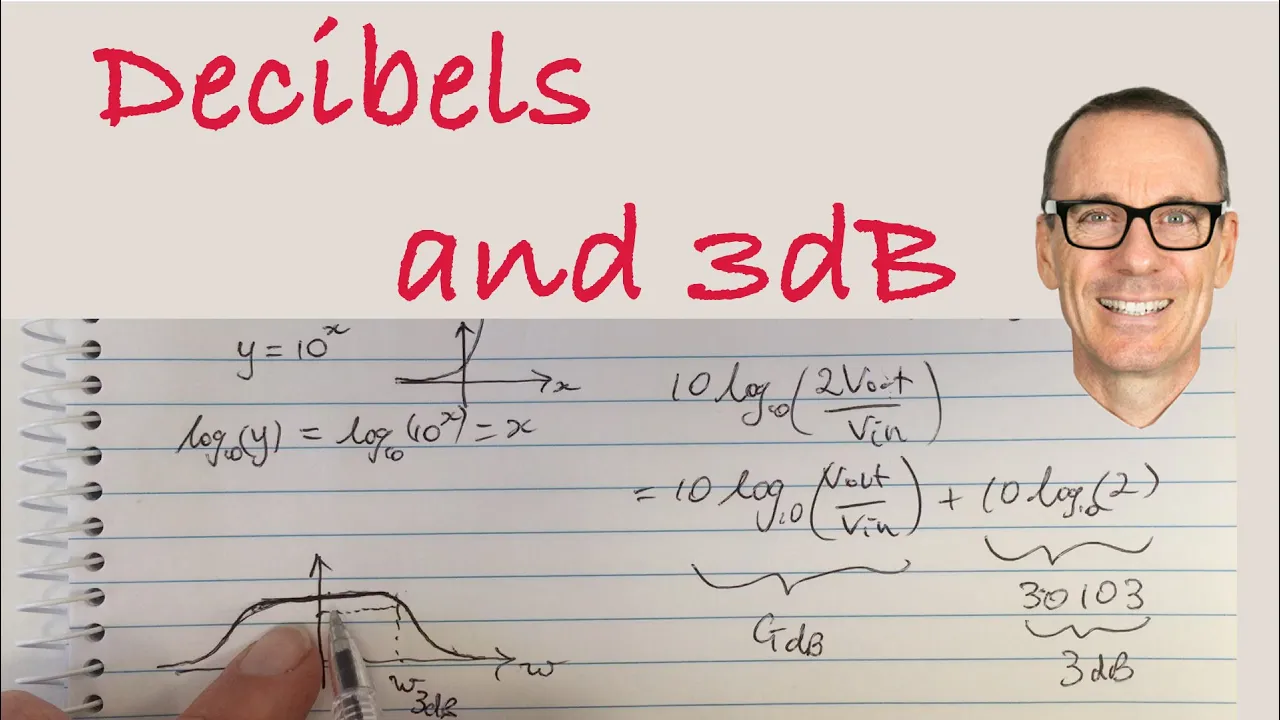 Decibels
and 3dB
y = 10^x
x
log₁₀(y) = log₁₀(10^x) = x
10 log₁₀(2Vout/Vin)
= 10 log₁₀(Vout/Vin) + 10 log₁₀(2)
G dB
30103
3dB
w
w3dB